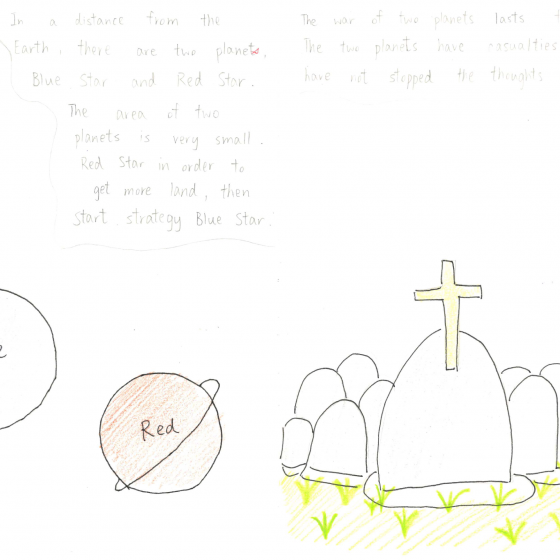 In a distance from the
Earth, there are two planets.
Blue Star and Red Star.
The area of two
planets is very small.
Red Star in order to
get more land, then
start strategy Blue Star.
The war of two planets lasts
The two planets have casualties
have not stopped the thoughts
Red